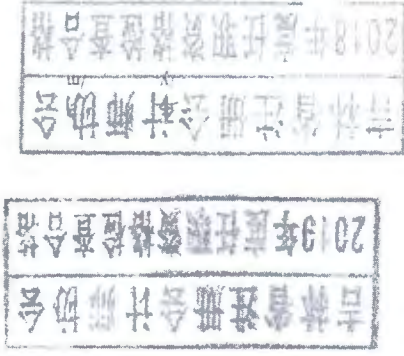 吉林省注册会计师协会
2019年度任职资格检查合格
吉林省注册会计师协会
2018年度任职资格检查合格